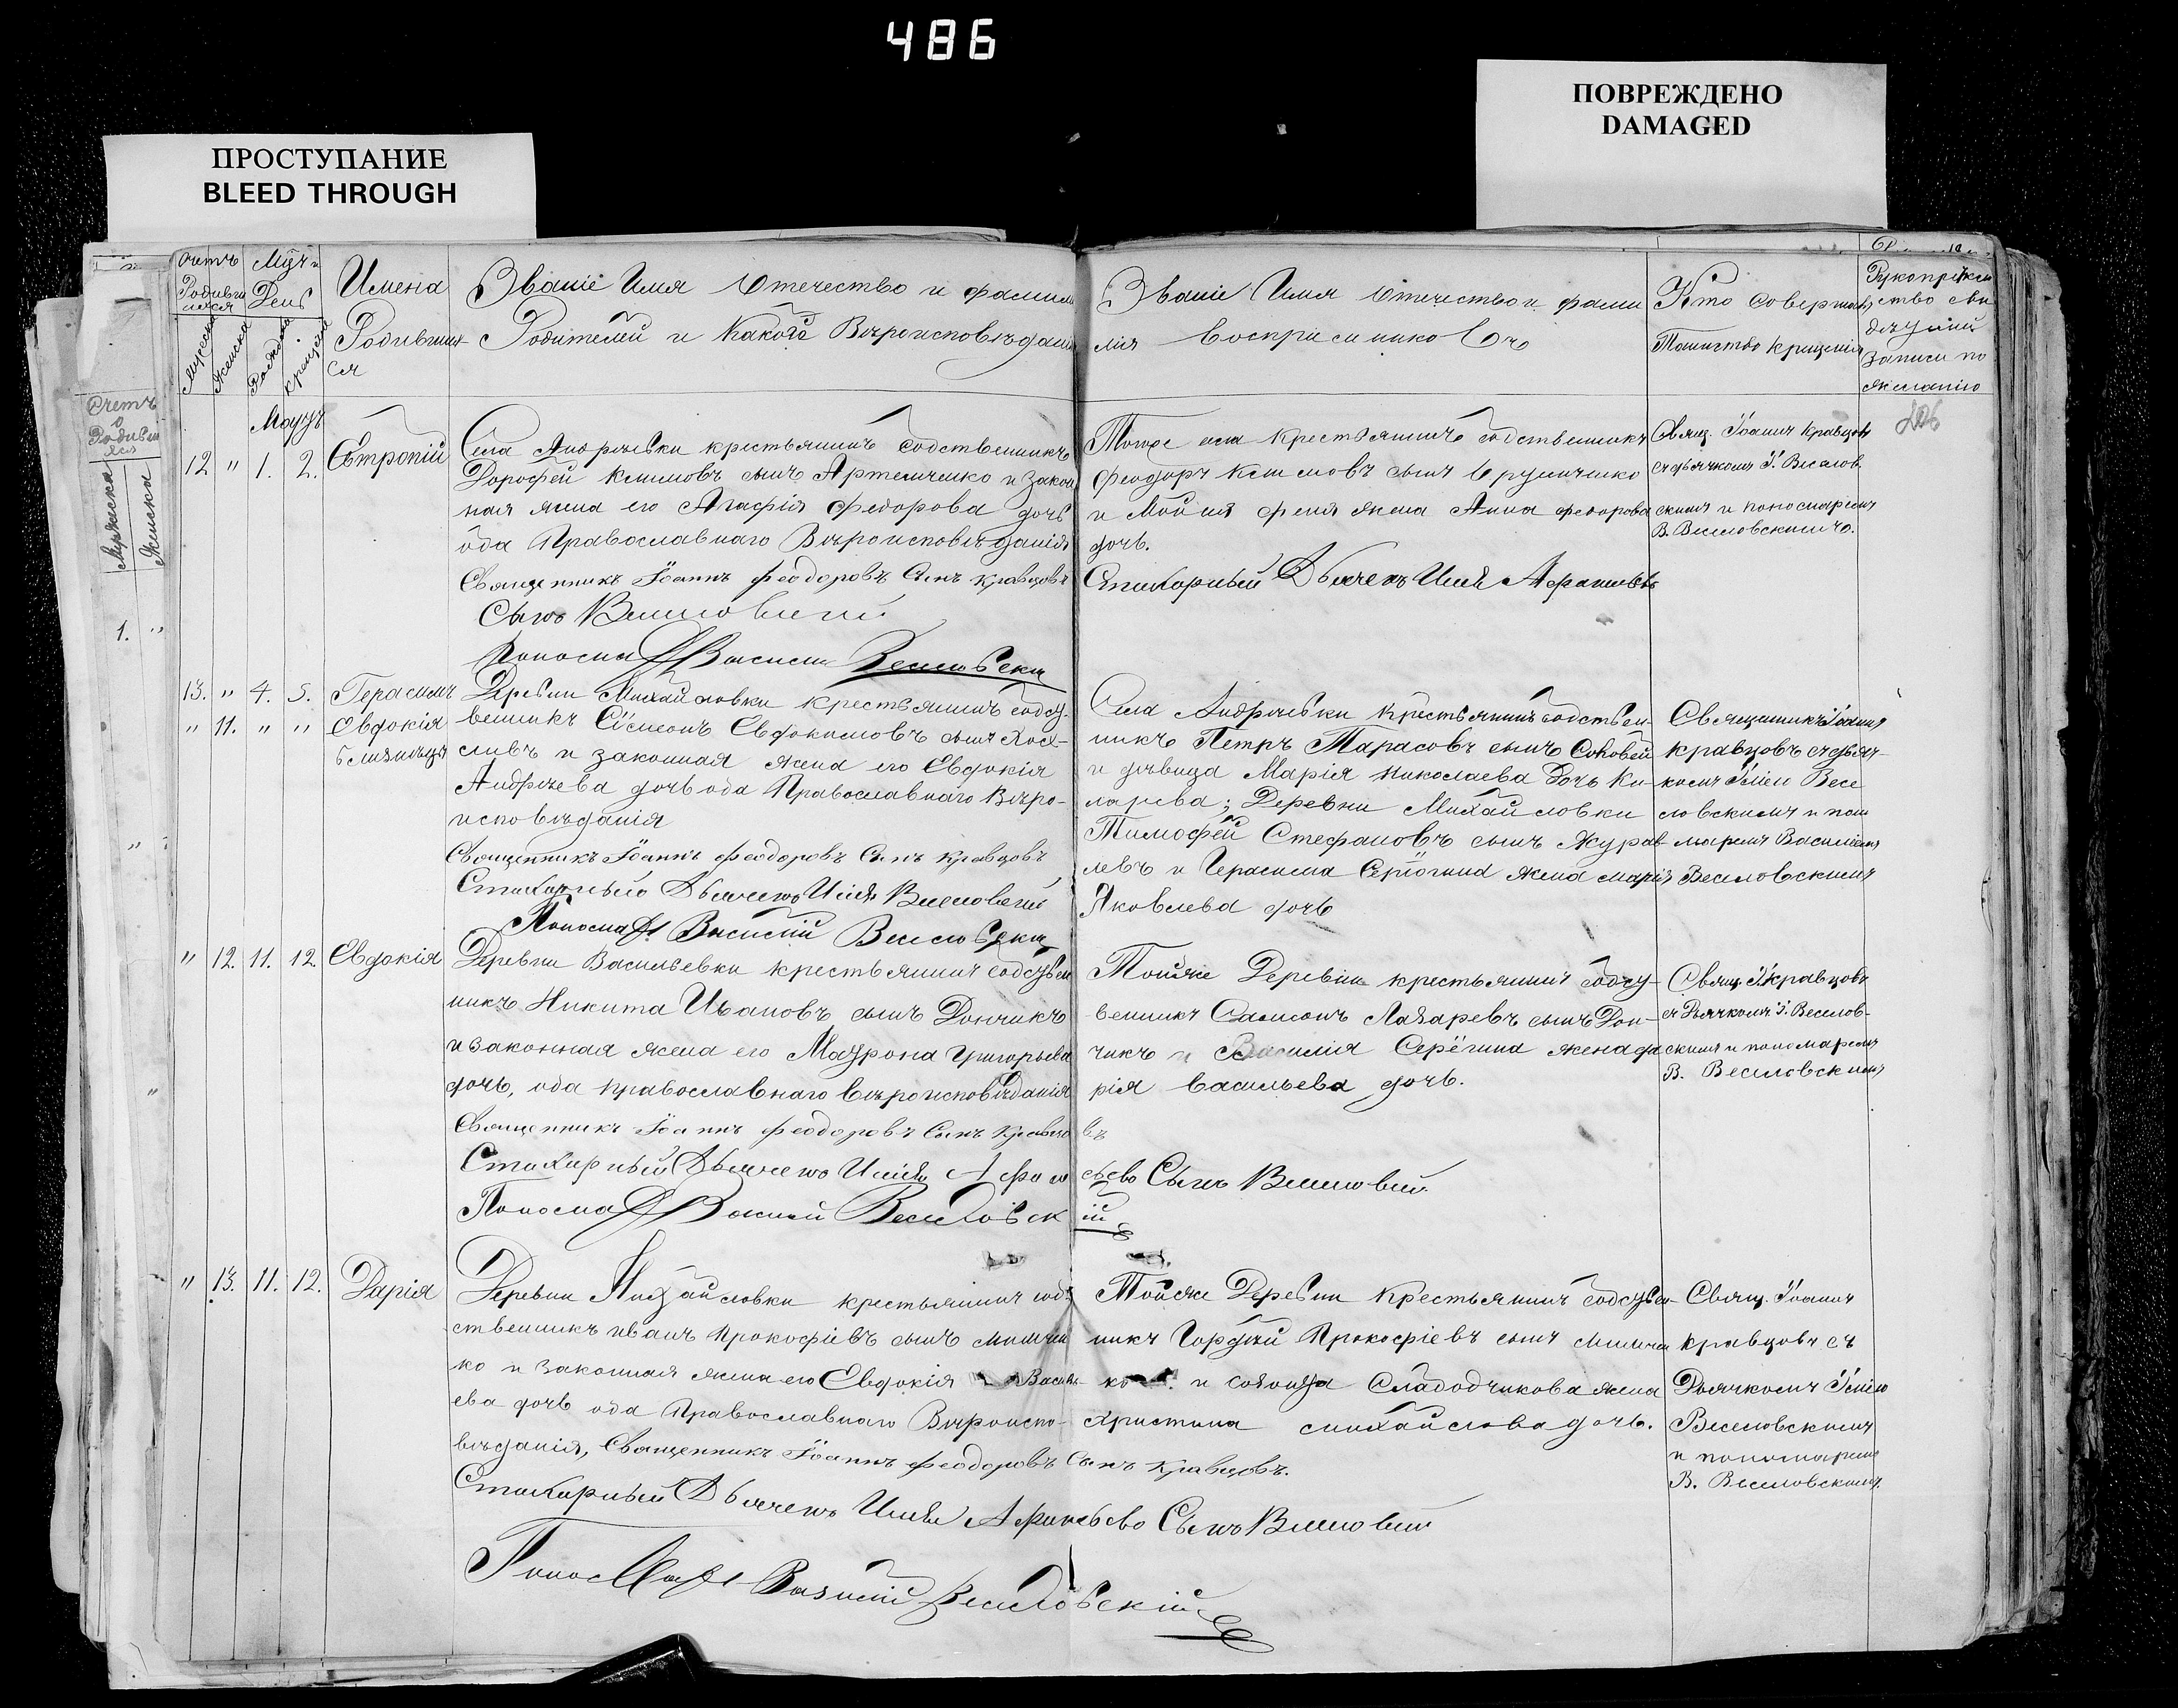 486
ПОВРЕЖДЕНО
DAMAGED
ПРОСТУПАНИЕ
BLEED THROUGH
Счетъ
Родивш
ихся
Мужеска
Женска
Мѣс. и
День
Рожденія
крещенія
Имена
Родивших
ся
Званіе Имя Отчество и фамилія
Родителей и Какого Вѣроисповѣданія
Званіе Имя Отчество и фами
лія Воспріемниковъ
Кто совершалъ
Таинство крещенія
Рукоприклад
ство сви
дѣтелей
записи по
желанію
Счетъ
Родивш
ихся
Мужеска
Женска
1. "
Мартъ
12 " 1. 2.
Евтропій
Села Андреевки крестьянинъ собственникъ
Дорофей Климовъ сынъ Артемченко и закон
ная жена его Агафія Федорова дочь
оба Православнаго Вѣроисповѣданія
Священникъ Іоаннъ Феодоровъ Сынъ Кравцовъ
Сынъ Веселовскій
Пономарь Василій Веселовскій
Того же села крестьянинъ собственникъ
Феодоръ Климовъ сынъ
и жена Анна Федорова
дочь.
Стихарный Дьячекъ Илія Афанасьевъ
Свящ. Іоаннъ Кравцовъ
съ дьячкомъ І. Веселов
скимъ и пономаремъ
В. Веселовскимъ.
13. " 4. 5.
" 11. " "
Герасимъ
Евдокія
близнецы
Деревни Михайловки крестьянинъ собст
венникъ Сімеонъ Евдокимовъ сынъ
и законная жена его Евдокія
Андреева дочь оба Православнаго Вѣро-
исповѣданія
Священникъ Іоаннъ Феодоровъ Сынъ Кравцовъ
Стихарный Дьячекъ Илія Веселовскій
Пономарь Василій Веселовскій
Села Андреевки крестьянинъ собствен
никъ Петръ Тарасовъ сынъ Соловей
и дѣвица Марія Николаева дочь Ки-
ларева; Деревни Михайловки
Тимофей Стефановъ сынъ Журав
левъ и Герасима Серёгина жена Марія
Яковлева дочь
Священникъ Іоаннъ
Кравцовъ съ дьяч-
комъ Іліею Весе
ловскимъ и поно
маремъ Василіемъ
Веселовскимъ
" 12. 11. 12.
Евдокія
Деревни Васильевки крестьянинъ собствен
никъ Никита Ивановъ сынъ Дончикъ
и законная жена его Матрона Григорьева
дочь, оба православнаго вѣроисповѣданія
Священникъ Іоаннъ Феодоровъ Сынъ Кравцо
въ
Стихарный Дьячекъ Илія Афана
сьевъ Сынъ Веселовскій
Пономарь Василій Веселовск
ій
Той же Деревни крестьянинъ собст-
венникъ Самсонъ Лазаревъ сынъ Дон-
чикъ и Василія Серёгина жена Да
рія Васильева дочь.
Свящ. І. Кравцовъ
съ Дьячкомъ І. Веселов-
скимъ и пономаремъ
В. Веселовскимъ
" 13. 11. 12.
Дарія
Деревни Михайловки крестьянинъ соб
ственникъ Иванъ Прокофіевъ сынъ
ко и законная жена его Евдокія Василь
ева дочь оба Православнаго Вѣроиспо-
вѣданія, Священникъ Іоаннъ Феодоровъ Сынъ Кравцовъ.
Стихарный Дьячекъ Илія Афанасьевъ Сынъ Веселовскій
Пономарь Василій Веселовскій
Той же Деревни крестьянинъ собствен-
никъ Гордѣй Прокофіевъ сынъ
ко и жена
Христина Михайлова дочь.
Свящ. Іоаннъ
Кравцовъ съ
Дьячкомъ Іліею
Веселовскимъ
и пономаремъ
В. Веселовскимъ.